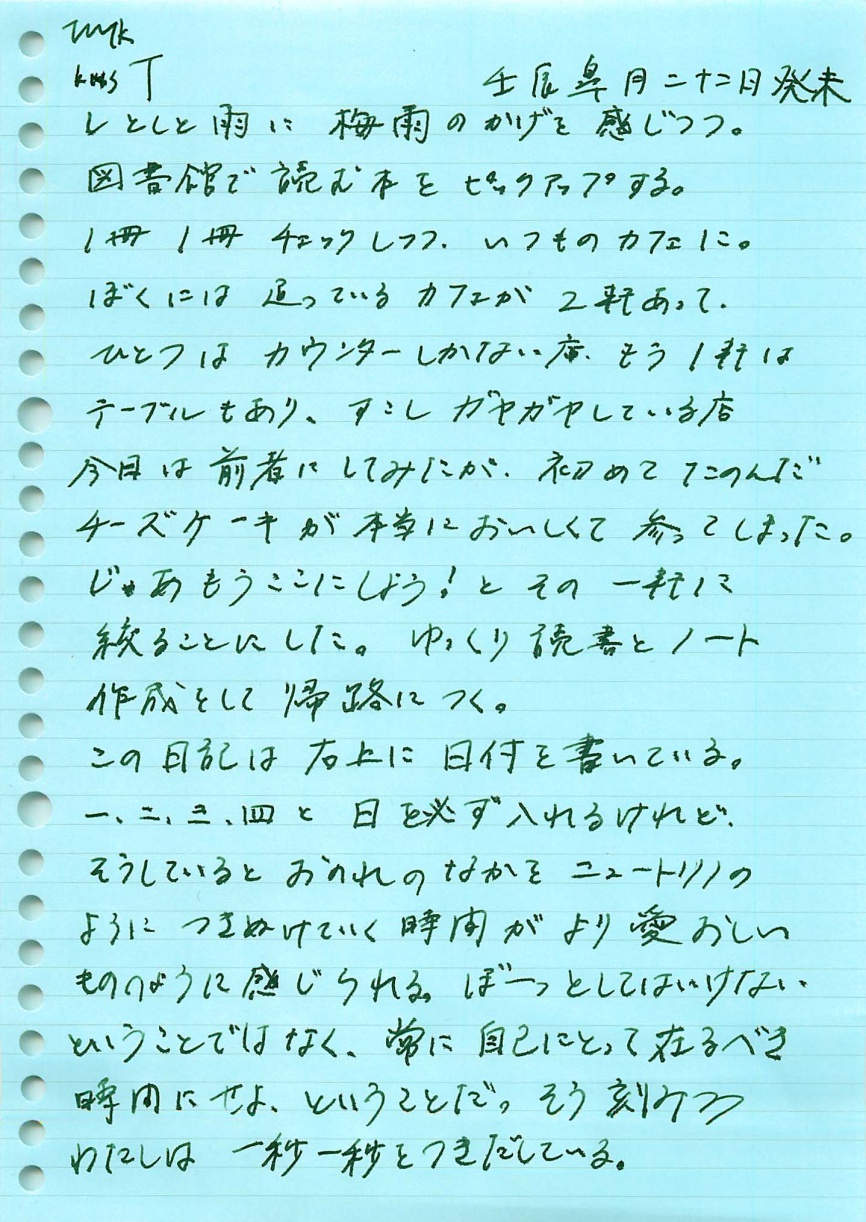 壬辰皐月二十二日発未
しとしと雨に 梅雨のかげを 感じつつ。
図書館で 読む本を ピックアップする。
1冊 1冊 チェックしつつ、いつものカフェに。
ぼくには 迷っている カフェが 2軒あって、
ひとつは カウンターしかない店、もう1軒は
テーブルもあり、すこし ガヤガヤしている店
今日は 前者に してみたが、初めて たのんだ
チーズケーキが 本当に おいしくて 参ってしまった。
じゃあもうここにしよう!と その 一軒に
絞ることにした。 ゆっくり 読書と ノート
作成をして 帰路に つく。
この 日記は 右上に 日付を 書いている。
一、二、三、四と 日を必ず入れるけれど、
そうしていると おのれの なかを ニュートリノの
ように つきぬけていく 時間が より 愛おしい
もののように 感じられる。 ぼーっとしてはいけない
ということではなく、常に 自己にとって 在るべき
時間に せよ、ということだ。 そう 刻みつつ
わたしは 一秒一秒を つきだしている。